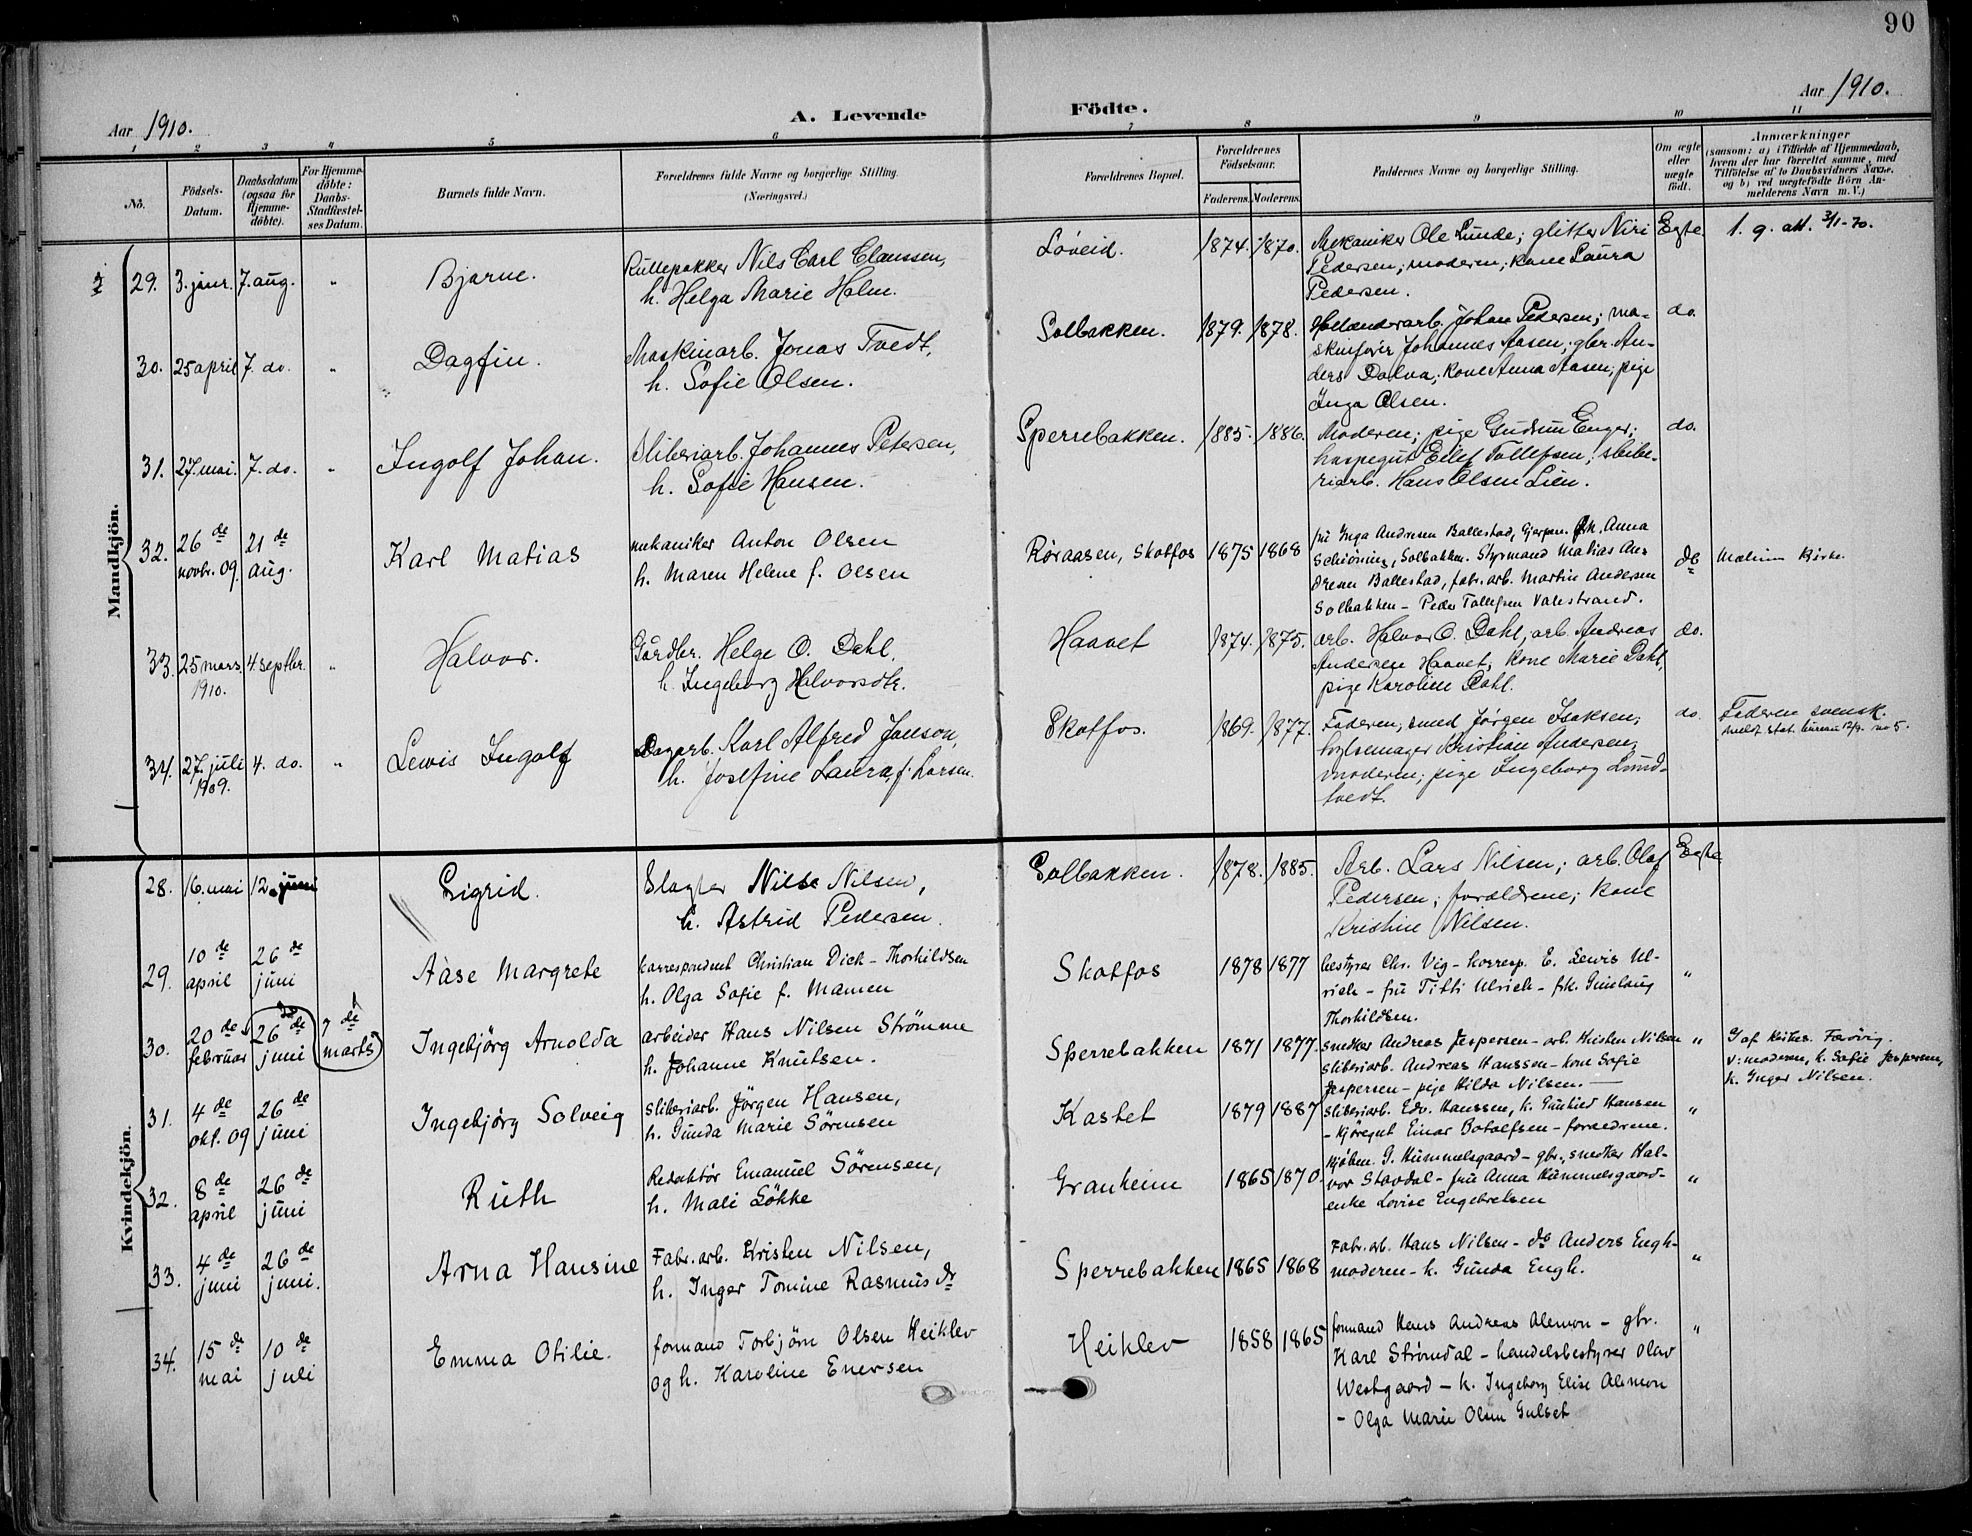 90
Aar 1910.
A. Levende
Födte.
Aar 1910.
1 2 3 4 5 6 7 8 9 10 11
No.
Födsels-
Datum.
Daabsdatum
(ogsaa for
Hjemme-
döbte).
For Hjemme-
döbte:
Daabs-
Stadfæstel-
ses Datum.
Barnets fulde Navn.
Forældrenes fulde Navne og borgerlige Stilling.
(Næringsvei.)
Forældrenes Bopæl.
Forældrenes
Födselsaar.
Faderens. Moderens.
Faddernes Navne og borgerlige Stilling.
Om ægte
eller
uægte
födt.
Anmærkninger
(saasom: a) i Tilfælde af Hjemmedaab,
hvem der har forrettet samme, med
Tilföielse af to Daabsvidners Navne,
og b) ved uægtefödte Börn An-
melderens Navn m. V.)
Mandkjön.
29. 3. jan. 7. aug. " Bjarne.
Rullepakker Nils Carl Claussen,
h. Helga Marie Holm.
Løveid. 1874. 1870.
Mekaniker Ole Lunde; glitter Niri
Pedersen; moderen; kone Laura
Pedersen.
Egte. 1. g. att. 3/1-70.
30. 25 april 7. do. " Dagfin.
Maskinarb. Jonas Tvedt,
h. Sofie Olsen.
Solbakken. 1879. 1878.
Holænderarb. Johan Pedersen; ma-
skinfører Johannes Aasen; gbr. An-
ders Dalva; kone Anna Aasen; pige
Inga Olsen.
do.
31. 27. mai. 7. do. " Ingolf Johan.
Sliberiarb. Johannes Petersen,
h. Sofie Hansen.
Sperrebakken. 1885. 1886.
Moderen; pige Gudrun Enger;
haspegut Eilef Tollefsen; slibe-
riarb. Hans Olsen Lien.
do.
32. 26de novbr. 09. 21de aug. Karl Matias
mekaniker Anton Olsen
h. Maren Helene f. Olsen
Røraasen, Skotfos 1875 1868
fru Inga Andresen Ballestad, Gjerpen. frk. Anna
Schiöning, Solbakken. Styrmand Matias An-
dresen Ballestad, fabr. arb. Martin Andersen
Solbakken - Peder Tollefsen Valestrand.
do
33. 25 mars 1910. 4 septbr. " Halvor.
Gårdbr. Helge O. Dahl,
h. Ingeborg Halvorsdtr.
Haavet 1874. 1875.
arb. Halvor O. Dahl; arb. Andreas
Andersen Haavet; kone Marie Dahl,
pige Karoline Dahl.
do.
34. 27. juli 1909. 4. do. " Lewis Ingolf
Dagarb. Karl Alfred Janson,
h. Josefine Laura, f. Larsen.
Skotfos. 1869. 1877.
Faderen; smed Jørgen Isaksen;
hylsemager Kristian Andersen;
moderen; pige Ingeborg Lund-
tvedt.
do. Faderen svensk.
meldt stat. bureau 12/9. no 5.
Kvindekjön.
28. 16. mai 12. juni Sigrid.
Slagter Nils Nilsen,
h. Astrid Pedersen.
Solbakken. 1878. 1885.
Arb. Lars Nilsen; arb. Olaf
Pedersen; forældrene; kone
Kristine Nilsen.
Egte
29. 10de april 26de juni Aase Margrete
korrespondent Christian Dick-Thorkildsen
h. Olga Sofie f. Mamen
Skotfos 1878 1877
bestyrer Chr. Vig - korresp. E. Lewis Ul-
rich - fru Titti Ulrich - frk. Gunlaug
Thorkildsen.
"
30. 20de februar 26de juni 7de marts Ingebjörg Arnolda
arbeider Hans Nilsen Strömme
h. Johanne Knutsen.
Sperrebakken 1871 1877.
snedker Andreas Jespersen - arb. Kristen Nilsen
sliberiarb. Andreas Hanssen - kone Sofie
Jespersen - pige Hilda Nilsen.
"
v: moderen, k. Sofie Jespersen,
k. Inger Nilsen.
31. 4de okt. 09 26de juni Ingebjörg Solveig
sliberiarb. Jörgen Hansen,
h. Gunda Marie Sörensen
Kastet 1879 1887
sliberiarb. Edv. Hanssen, k. Gunhild Hansen
- kjöregut Einar Botolfsen - foraeldrene.
"
32. 8de april 26de juni Ruth
Redaktör Emanuel Sörensen,
h. Mali Lökke
Granheim 1865 1870.
kjöbm. G. Hummelsgaard - gbr., snedker Hal-
vor Stavdal - fru Anna Hummelsgaard -
enke Lovise Engebretsen
"
33. 4de juni 26de juni. Arna Hansine
Fabr. arb. Kristen Nilsen,
h. Inger Tomine Rasmusdr
Sperrebakken 1865 1868
Fabr. arb. Hans Nilsen - do Anders Engh -
moderen - k. Gunda Engh.
"
34. 15de mai 10de juli Emma Otilie.
formand Torbjörn Olsen Heiklev
og h. Karoline Enersen
Heiklev 1858 1865
formand Hans Andreas Alemon - gbr.
Karl Strömdal - handelsbestyrer Olav
Westgaard - k. Ingeborg Elise Alemon
- Olga Marie Olsen Gulset
"